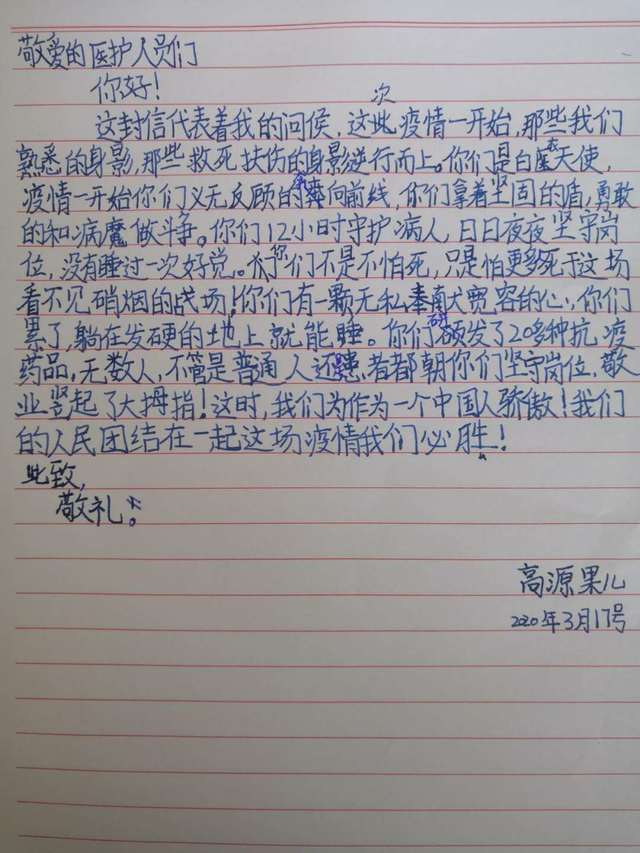 敬爱的医护人员们
你好！
这封信代表着我的问侯，这次疫情一开始，那些我们
熟悉的身影，那些救死扶伤的身影逆行而上。你们是白衣天使，
疫情一开始你们义无反顾的奔向前线，你们拿着坚固的盾，勇敢
的和病魔做斗争。你们12小时守护病人，日日夜夜坚守岗
位，没有睡过一次好觉。你们不是不怕死，只是怕更多死于这场
看不见硝烟的战场！你们有一颗无私奉献宽容的心，你们
累了，躺在发硬的地上就能睡。你们研发了20多种抗疫
药品，无数人，不管是普通人还患者都朝你们坚守岗位，敬
业竖起了大拇指！这时，我们为作为一个中国人骄傲！我们
的人民团结在一起这场疫情我们必胜！
此致，
敬礼。
高源果儿
2020年3月17号